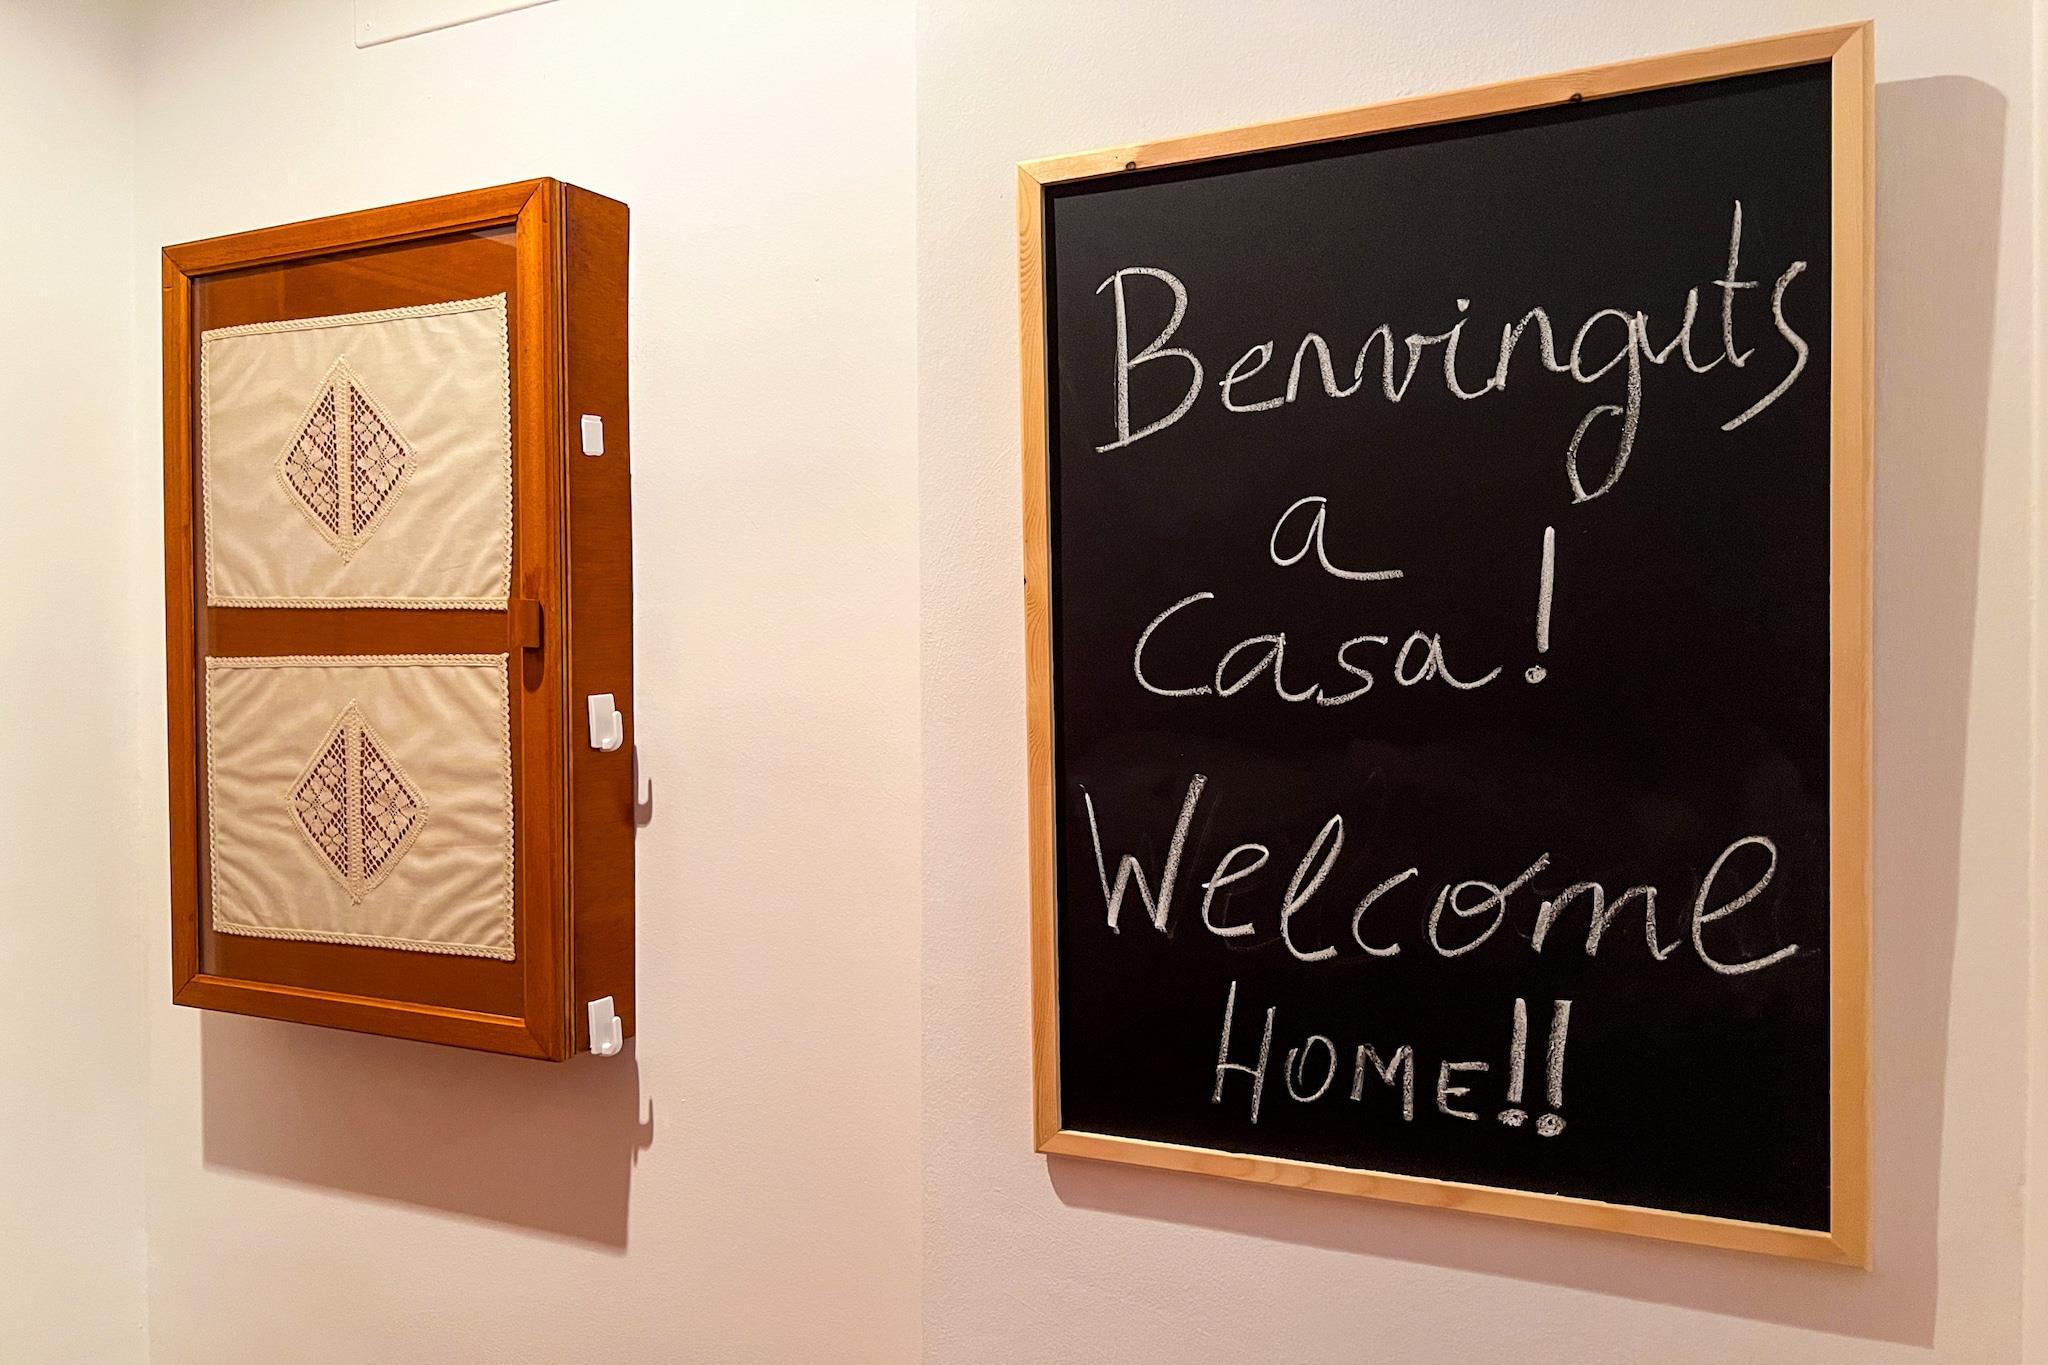 Benvinguts
a
Casa!
Welcome
HOME!!